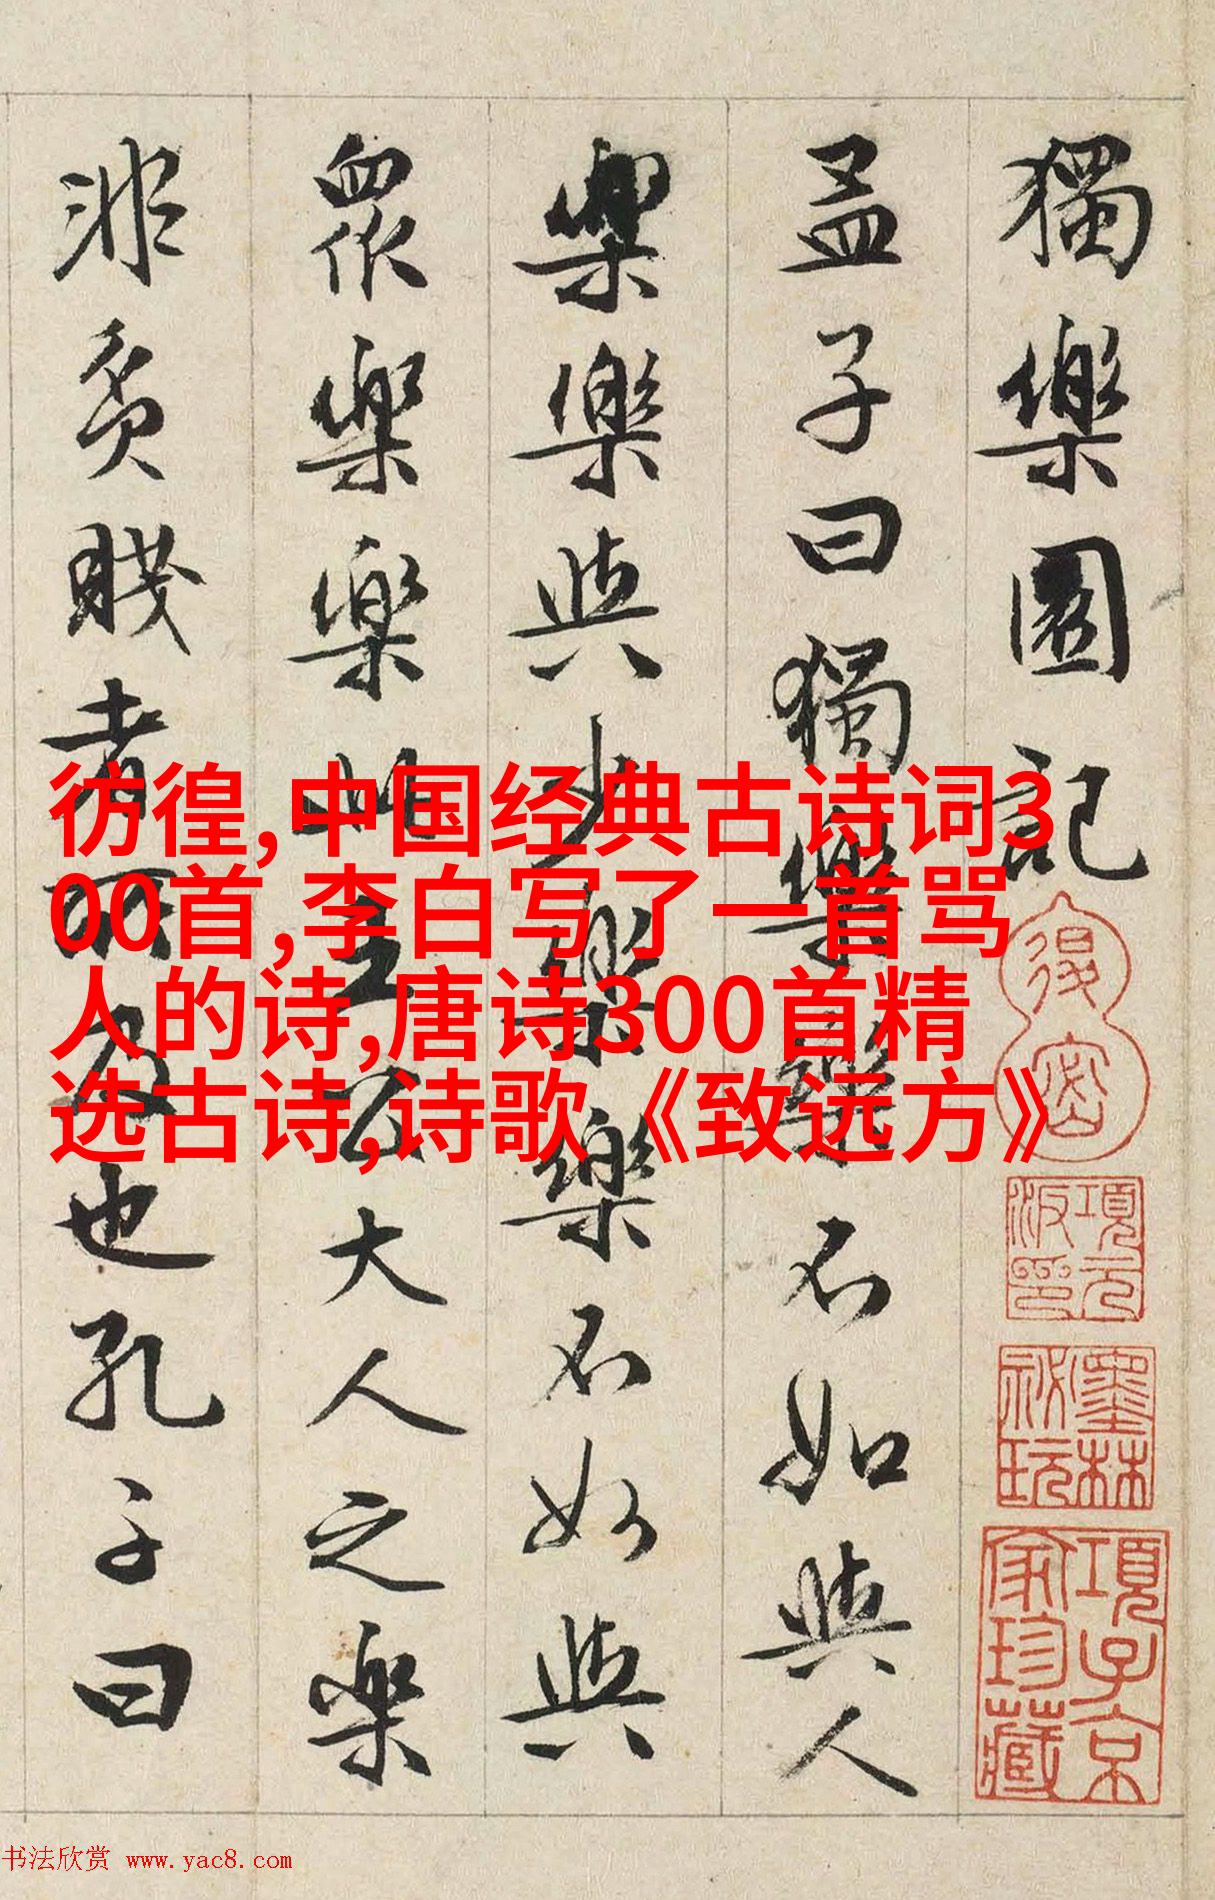 獨樂園記
孟子曰獨樂樂不如與人
樂樂與少樂樂不如與
衆樂樂此王公大人之樂
非貧賤者所及也孔子曰
彷徨,中国经典古诗词3
00首,李白写了一首骂
人的诗,唐诗300首精
选古诗,诗歌《致远方》
項元汴印
墨林祕玩
項子京家珍藏
书法欣赏 www.yac8.com